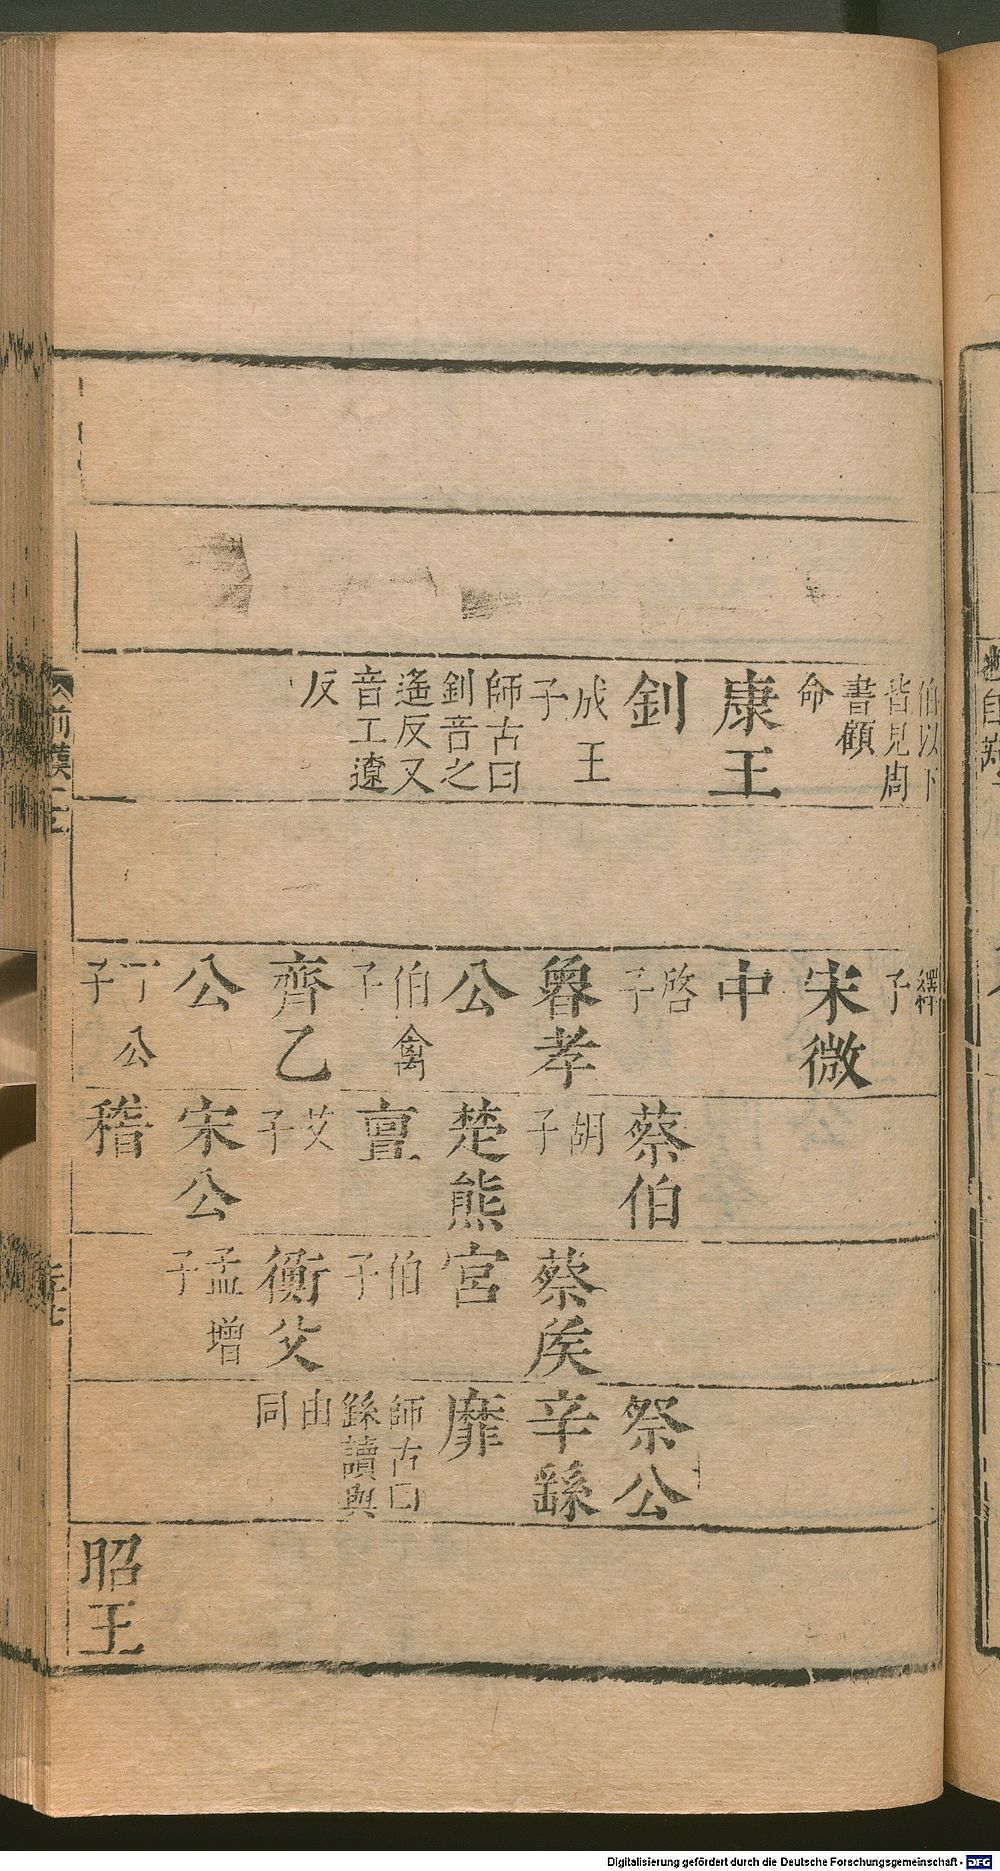 伯以下
皆見周
書顧
命
康王
釗
成王
子
師古曰
釗音之
遙反又
音工遼
反
釋
子
宋微
中
啓
子
魯孝
公
伯禽
子
齊乙
公
丁公
子
蔡伯
胡
子
楚熊
亶
艾
子
宋公
稽
蔡矦
宮
伯
子
衡父
孟增
子
祭公
辛繇
靡
師古曰
繇讀與
由
同
昭王
前漢二
Digitalisierung gefördert durch die Deutsche Forschungsgemeinschaft - DFG